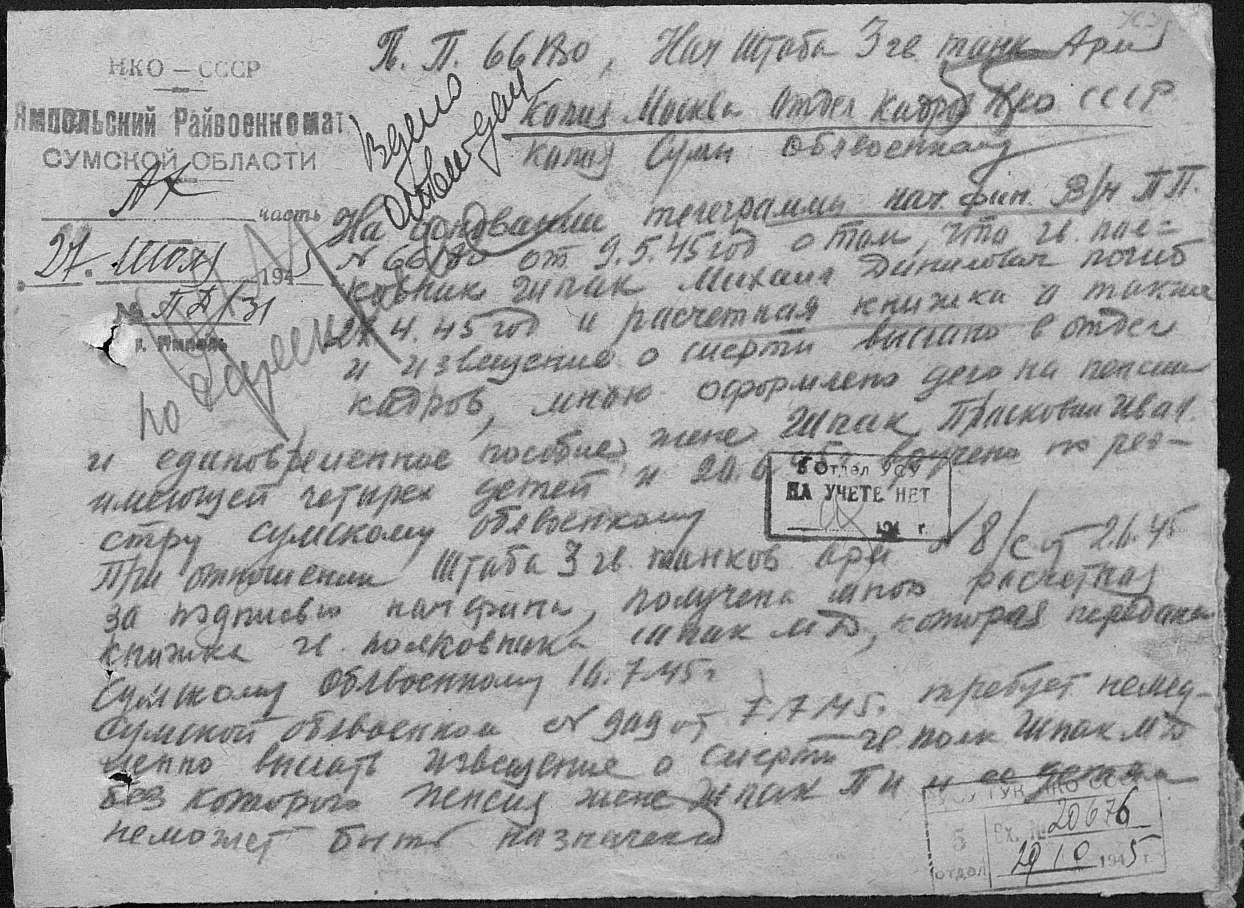 НКО — СССР
Ямпольский Райвоенкомат
СУМСКОЙ ОБЛАСТИ
часть
27. Июля 1945
№
г. Ямполь
П. П. 66180, Нач Штаба 3 гв танк Арм
Копия Москва Отдел кадров НКО СССР
копия Сумы Облвоенкому
На основании телеграммы нач. фин. В/ч ПП.
№ 66180 от 9.5.45 год о том, что гв. пол=
ковник Шпак Михаил Данилович погиб
4.45 год и расчетная книжка а также
и извещение о смерти выслано в отдел
кадров, мною оформлено дело на пенсии
и единовременное пособие, жене Шпак Прасковии Иван.
имеющей четырех детей и вручено по рее-
стру Сумскому облвоенкому
При отношении Штаба 3 гв. танков арм № 8/с от 2.6.45
за подписью начфина, получена мною расчетная
книжка гв. полковника Шпак МД, которая передана
Сумскому Облвоенкому 16.7.45г.
Сумской облвоенком № 949 от 7.7.45г. требует немед-
ленно выслать извещение о смерти гв полк Шпак МД
без которого пенсия жене Шпак ПИ и ее детям
неможет быть назначена
5 Отдел УСУ
НА УЧЕТЕ НЕТ
194 г.
НКО СССР
5
ОТДЕЛ
Вх. № 20676
29 10 1945 г.